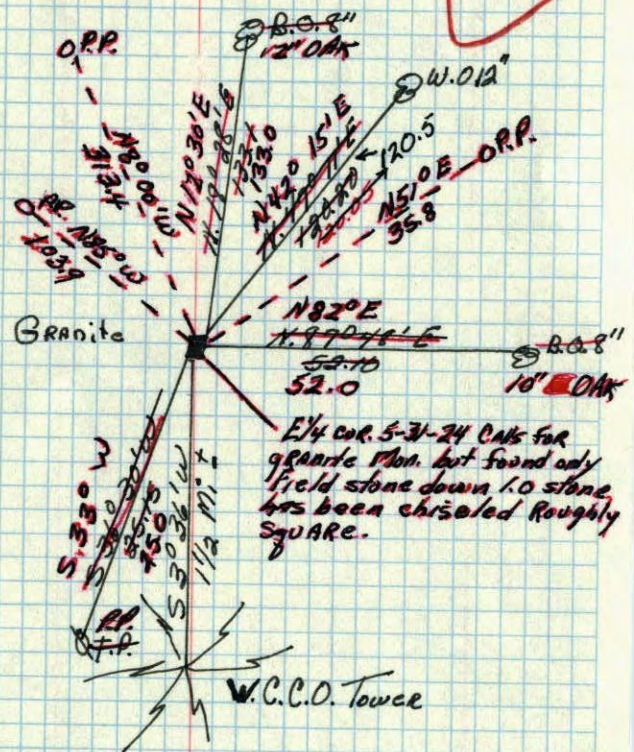 O P.P.
B.O. 8"
12" OAK
W.O 12"
O P.P.
N8°00'W
313.4
N12°36'E
N.
133.0
N42° 15'E
120.5
N51°E
35.8
O P.P. N85°W
103.9
GRANite
N82°E
N.87°48'E
52.10
52.0
B.O. 8"
10" OAK
E1/4 COR. 5-31-24 CALLS FOR
GRANITE MON. but found only
Field stone down 1.0 stone
has been chiseled Roughly
SQUARE.
S 33° W
75.0
S 3° 36' W
1 1/2 Mi ±
P.P.
T.P.
W.C.C.O. Tower